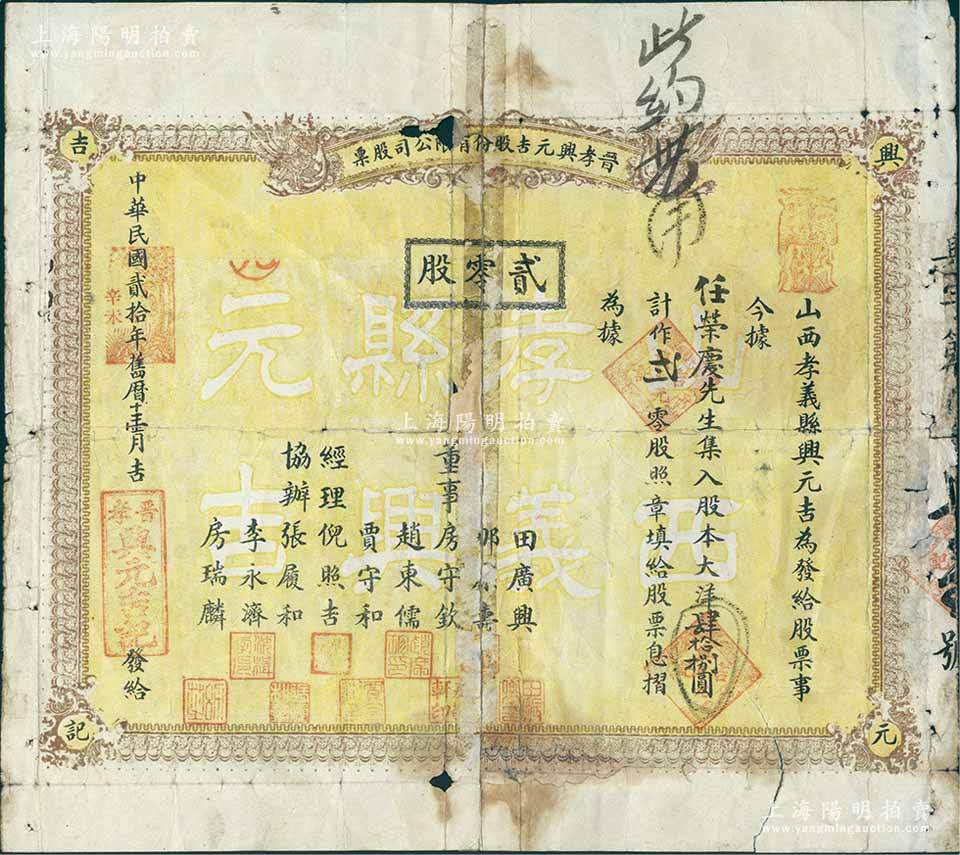 上海陽明拍賣
www.yangmingauction.com
此約無用
晉孝興元吉股份有限公司股票
興
元
吉
記
貳零股
山西孝義縣興元吉為發給股票事
今據
任榮慶先生集入股本大洋肆拾捌圓
計作弍零股照章填給股票息摺
為據
田廣興
壽
董事房守欽
趙東儒
賈守和
經理倪照吉
協辦張履和
李永濟
房瑞麟
中華民國貳拾年舊曆十二月吉
辛未
晉孝
興元吉記
發給
山西
孝義
縣興
元吉
號
上海陽明拍賣
www.yangmingauction.com
上海陽明拍賣
www.yangmingauction.com